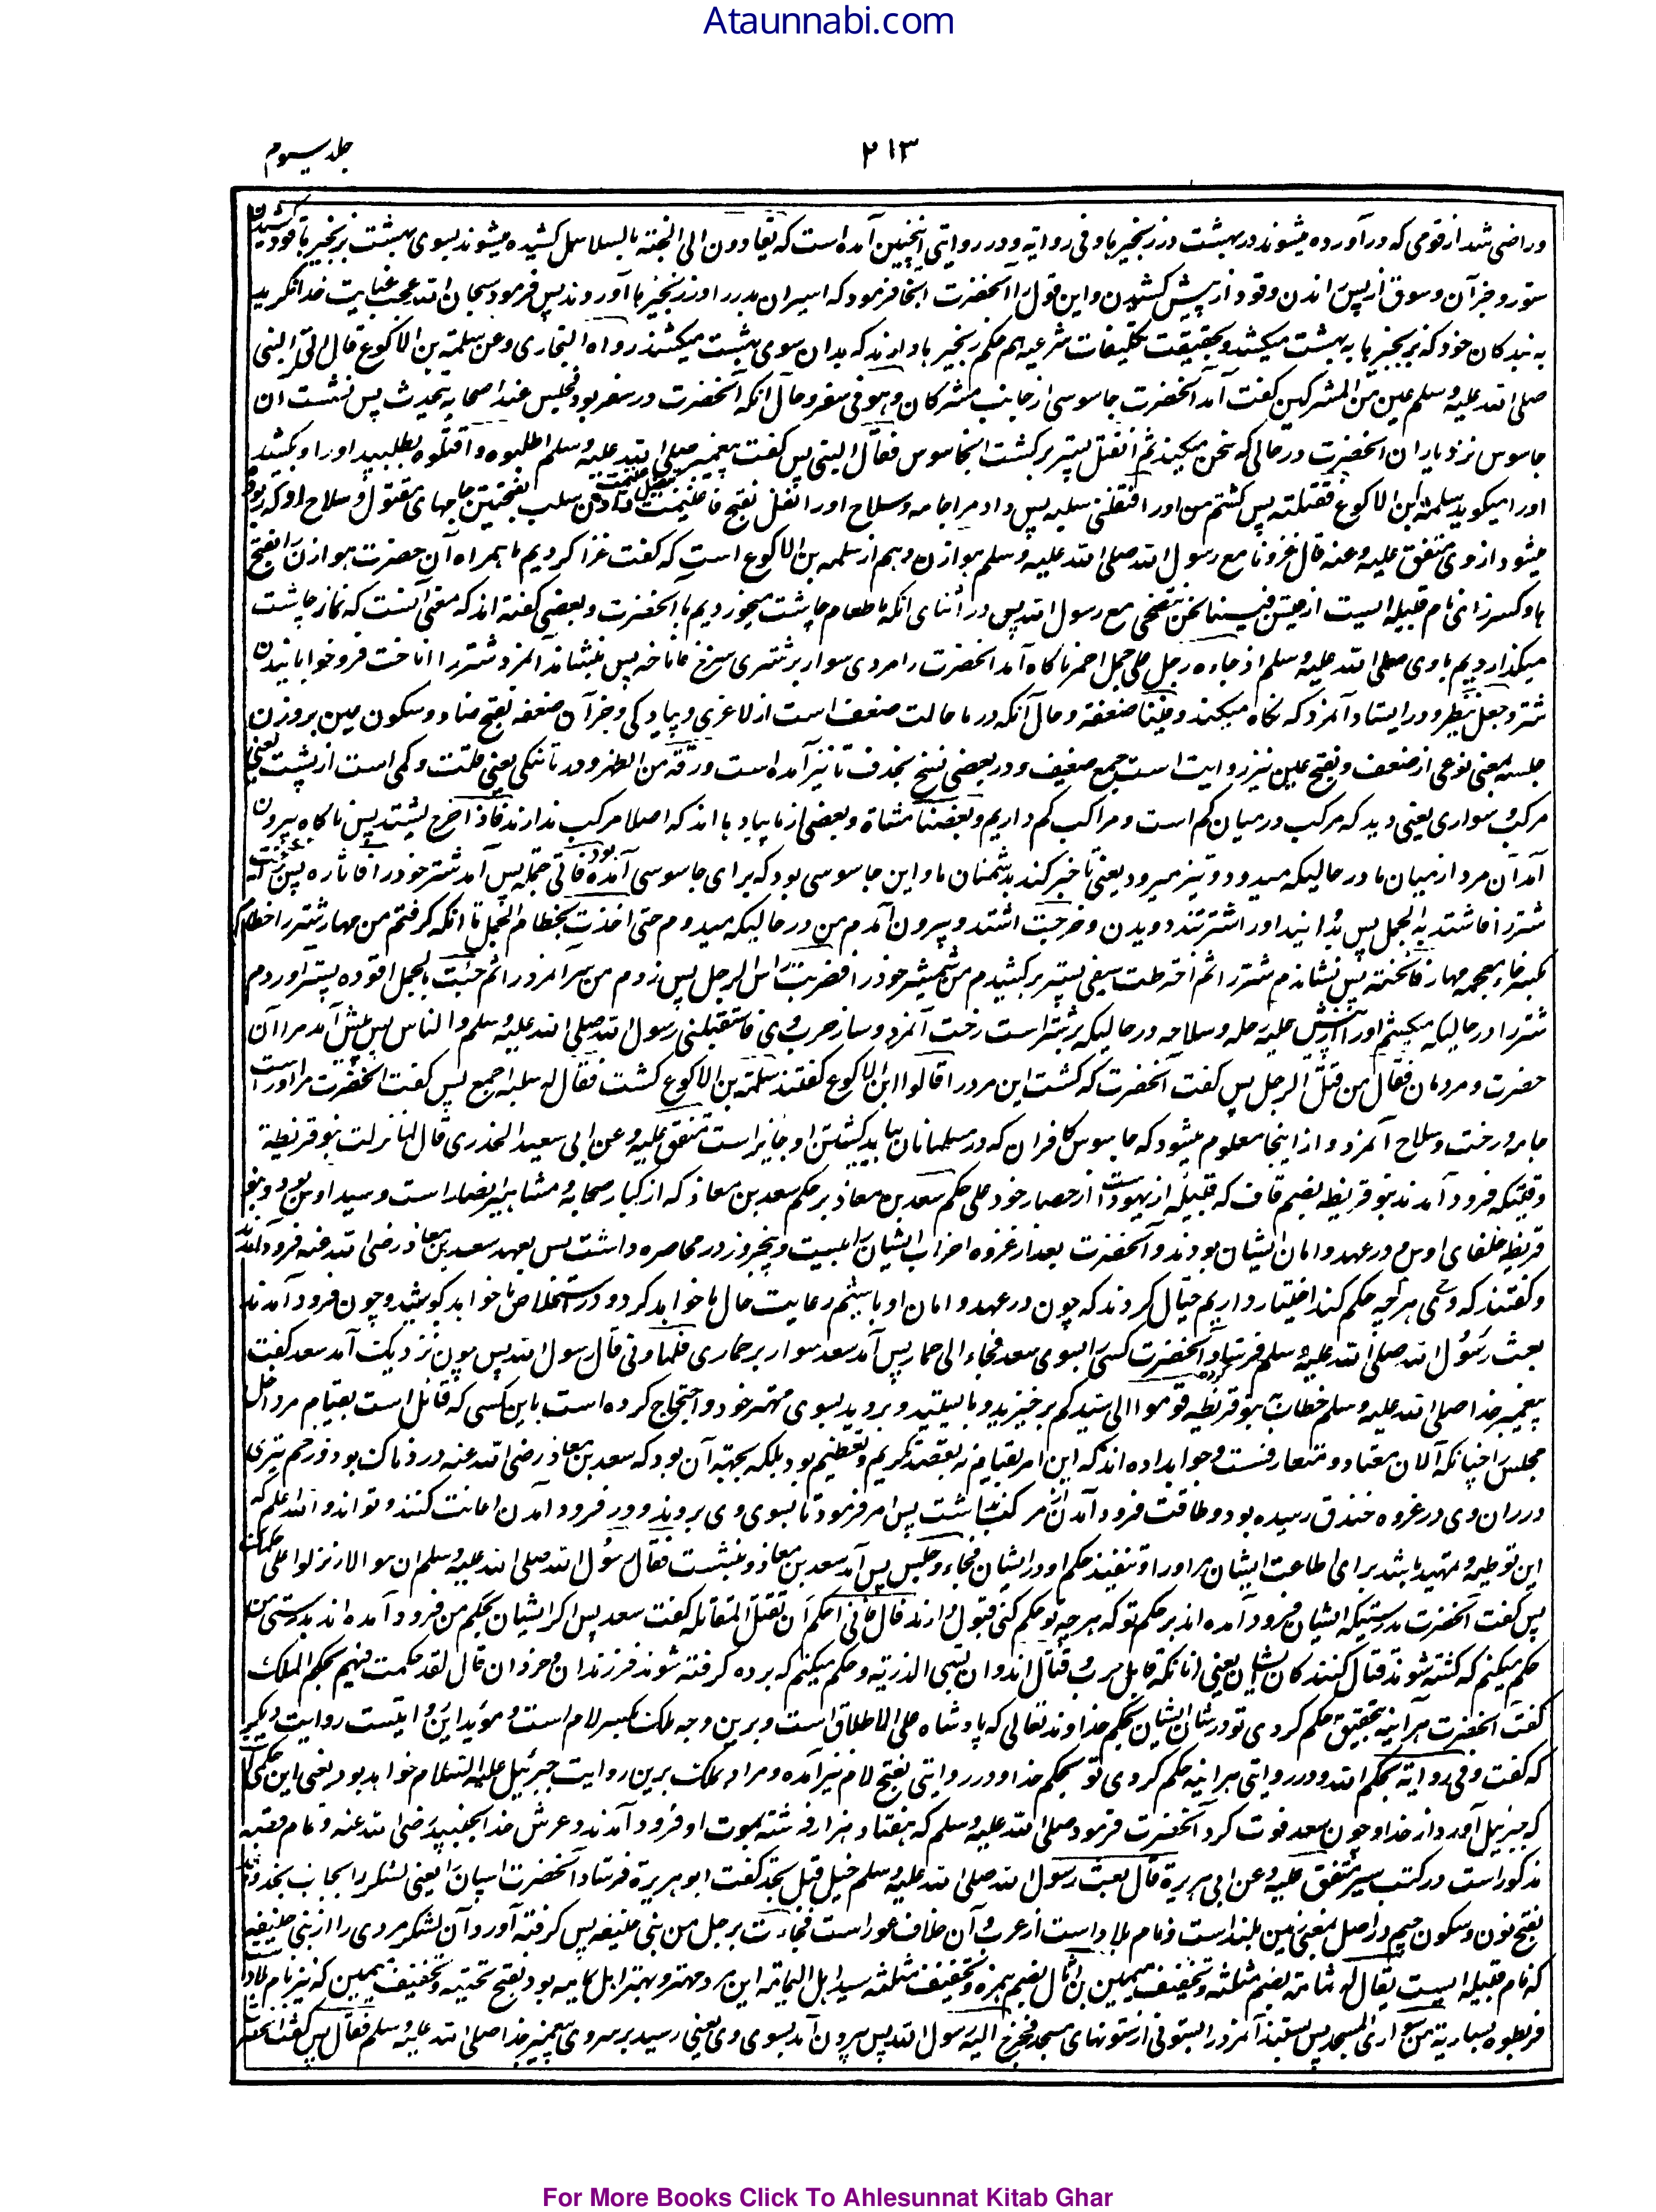 Ataunnabi.com
۲۱۳
جلد سیوم
وراضی شد از قومی که در آورده میشوند در بهشت در زنجیر ها و فی روایه و در روایتی اینچنین آمده است که یقادون الی الجنة بالسلاسل کشیده میشوند بسوی بهشت بزنجیرها قود کشیدن
ستور و جز آن و سوق از پس راندن و قود از پیش کشیدن و این قول را آنحضرت اینجا فرمود که اسیران بدر را در زنجیرها آوردند پس فرمود سبحان الله عجب عنایت خدا نگرید
به بندگان خود که بزنجیرها به بهشت میکشد و بحقیقت تکلیفات شرعیه هم حکم زنجیرها دارند که بدان سوی بهشت میکشند رواه البخاری وعن سلمة بن الاکوع قال اتی النبی
صلی الله علیه وسلم عین من المشرکین گفت آمد آنحضرت جاسوسی از جانب مشرکان وهو فی سفر و حال آنکه آنحضرت در سفر بود فجلس عند اصحابه یتحدث پس نشست آن
جاسوس نزد یاران آنحضرت در حالی که سخن میکند ثم انفتل پستر برگشت اینجاسوس فقال النبی پس گفت پیغمبر صلی الله علیه وسلم اطلبوه واقتلوه بطلبید او را و بکشید
او را میگوید سلمه ابن الاکوع فقتلته پس کشتم من او را فنفلنی سلبه پس داد مرا جامه و سلاح او را نفل بفتح فا غنیمت دادن سلب بفتحتین جامهای مقتول و سلاح او که ربوده
میشود از وی متفق علیه وعنه قال غزونا مع رسول الله صلی الله علیه وسلم هوازن وهم از سلمه بن الاکوع است که گفت غزا کردیم ما همراه آن حضرت هوازن را بفتح
ها و کسر زای نام قبیله ایست از قیس فبینا نحن نتضحی مع رسول الله پس در اثنای انکه ما طعام چاشت میخوردیم با آنحضرت و بعضی گفته اند که معنی آنست که نماز چاشت
میگذاردیم باوی صلی الله علیه وسلم اذ جاءه رجل علی جمل احمر ناگاه آمد آنحضرت را مردی سوار بر شتری سرخ فاناخه پس بنشاند آنمرد شتر را اناخت فرو خوابانیدن
شتر وجعل ینظر و در ایستاد آنمرد که نگاه میکند وفینا ضعفة و حال آنکه در ما حالت ضعف است از لاغری و پیادگی و جز آن ضعفه بفتح ضاد و سکون عین بر وزن
جلسه بمعنی نوعی از ضعف و بفتح عین نیز روایت است جمع ضعیف و در بعضی نسخ بحذف تا نیز آمده است ورقة من الظهر و در ما تنکی یعنی قلت و کمی است از پشت یعنی
مرکب سواری یعنی دید که مرکب در میان کم است و مراکب کم داریم وبعضنا مشاة و بعضی از ما پیاده ها اند که اصلا مرکب ندارند فاذ اخرج یشتد پس ناگاه بیرون
آمد آن مرد از میان ما در حالیکه میدود و تیز میرود یعنی تا خبر کند بدشمنان ما و این جاسوسی بود که برای جاسوسی آمده بود فاتی جمله پس آمد شتر خود را فاثاره پس برانگیخت
شتر را فاشتد به الجمل پس دوانید او را شتر تند دویدن وخرجت اشتد و بیرون آمدم من در حالیکه میدوم حتی اخذت بخطام الجمل تا انکه گرفتم من مهار شتر را خطام
بکسر خاء معجمه مهار فانخته پس نشاندم شتر را ثم اخترطت سیفی پستر برکشیدم من شمشیر خود را فضربت راس الرجل پس زدم من سر آنمرد را ثم جئت بالجمل اقوده پستر آوردم
شتر را در حالیکه میکشم او را از پیش علیه رحله وسلاحه در حالیکه بر شتر است رخت آنمرد و ساز حرب وی فاستقبلنی رسول الله صلی الله علیه وسلم والناس پس پیش آمد مرا آن
حضرت و مردمان فقال من قتل الرجل پس گفت آنحضرت که کشت این مرد را قالوا ابن الاکوع گفتند سلمة بن الاکوع کشت فقال له سلبه اجمع پس گفت آنحضرت مر او راست
جامه و رخت و سلاح آنمرد و از اینجا معلوم میشود که جاسوس کافران که در مسلمانان بیاید کشتن او جایز است متفق علیه وعن ابی سعید الخدری قال لما نزلت بنو قریظة
وقتیکه فرود آمدند بنو قریظه بضم قاف که قبیله از یهود است از حصار خود علی حکم سعد بن معاذ بر حکم سعد بن معاذ که از کبار صحابه و مشاهیر انصار است و سید اوس بود و بنو
قریظه حلفای اوس و در عهد و امان ایشان بودند و آنحضرت بعد از غزوه احزاب ایشان را بیست و پنجروز در محاصره داشت پس بعهد سعد بن معاذ رضی الله عنه فرود آمدند
و گفتند که وی هر چه حکم کند اختیار داریم خیال کردند که چون در عهد و امان او باشیم رعایت حال ما خواهد کرد و در استخلاص ما خواهد کوشید و چون فرود آمدند
بعث رسول الله صلی الله علیه وسلم فرستاد آنحضرت کسی را بسوی سعد فجاء الی حمار پس آمد سعد سوار بر حماری فلما دنی قال رسول الله پس چون نزدیک آمد سعد گفت
پیغمبر خدا صلی الله علیه وسلم خطاب کرده بنو قریظه قوموا الی سیدکم برخیزید و بایستید و بروید بسوی مهتر خود و احتجاج کرده است باین کسی که قائل است بقیام مر داخل
مجلس را چنانکه آلان معتاد و متعارفست و جواب داده اند که این امر بقیام نه بقصد تکریم و تعظیم بود بلکه بجهة آن بود که سعد بن معاذ رضی الله عنه دردناک بود از زخم تیری
در ران وی در غزوه خندق رسیده بود و طاقت فرود آمدن از مرکب نداشت پس امر فرمود تا بسوی وی بروند و در فرود آمدن اعانت کنند و تواند والله اعلم که
این توطیه و تمهید باشد برای اطاعت ایشان مر او را و تنفیذ حکم او در ایشان فجاء وجلس پس آمد سعد بن معاذ و بنشست فقال رسول الله صلی الله علیه وسلم ان هؤلاء نزلوا علی حکمک
پس گفت آنحضرت بدرستیکه ایشان فرود آمده اند بر حکم تو که هر چه تو حکم کنی قبول دارند قال فانی احکم ان تقتل المقاتله گفت سعد پس اکر ایشان بحکم من فرود آمده اند بدرستی من
حکم میکنم که کشته شوند قتال کنندگان ایشان یعنی انانکه قابل حرب و قتال اند وان تسبی الذریة و حکم میکنم که برده گرفته شوند فرزندان و خردان قال لقد حکمت فیهم بحکم الملک
گفت آنحضرت هر آینه بتحقیق حکم کردی تو در شان ایشان بحکم خداوند تعالی که پادشاه علی الاطلاق است و برین وجه ملک بکسر لام است و موید این روایتست روایت دیگر
که گفت وفی روایة بحکم الله و در روایتی هر اینه حکم کردی تو بحکم خدا و در روایتی بفتح لام نیز آمده و مراد بملک برین روایت جبرئیل علیه السلام خواهد بود یعنی این حکمی است
که جبرئیل آورد از خدا و چون سعد فوت کرد آنحضرت فرمود صلی الله علیه وسلم که هفتاد هزار فرشته بموت او فرود آمدند و عرش خدا بجنبید رضی الله عنه و تمام قصه
مذکور است در کتب سیر متفق علیه وعن ابی هریرة قال بعث رسول الله صلی الله علیه وسلم خیل قبل نجد گفت ابو هریرة فرستاد آنحضرت اسپان را یعنی لشکر را بجانب نجد
بفتح نون و سکون جیم در اصل بمعنی زمین بلند است و نام بلاد است از عرب و آن خلاف غور است فجاءت برجل من بنی حنیفه پس گرفته آورد آن لشکر مردی را از بنی حنیفه
که نام قبیله ایست یقال له ثمامة بضم مثلثه و تخفیف میمین بن اثال بضم همزه و تخفیف مثلثه سید اهل الیمامة این مرد مهتر و بهتر اهل یمامه بود بفتح تحتیه و تخفیف میمین که نیز نام بلاد
فربطوه بساریة من سواری المسجد پس بستند آنمرد را بستونی از ستونهای مسجد فخرج الیه رسول الله پس بیرون آمد بسوی وی یعنی رسید بر سر وی پیغمبر خدا صلی الله علیه وسلم فقال پس گفت آنحضرت
For More Books Click To Ahlesunnat Kitab Ghar